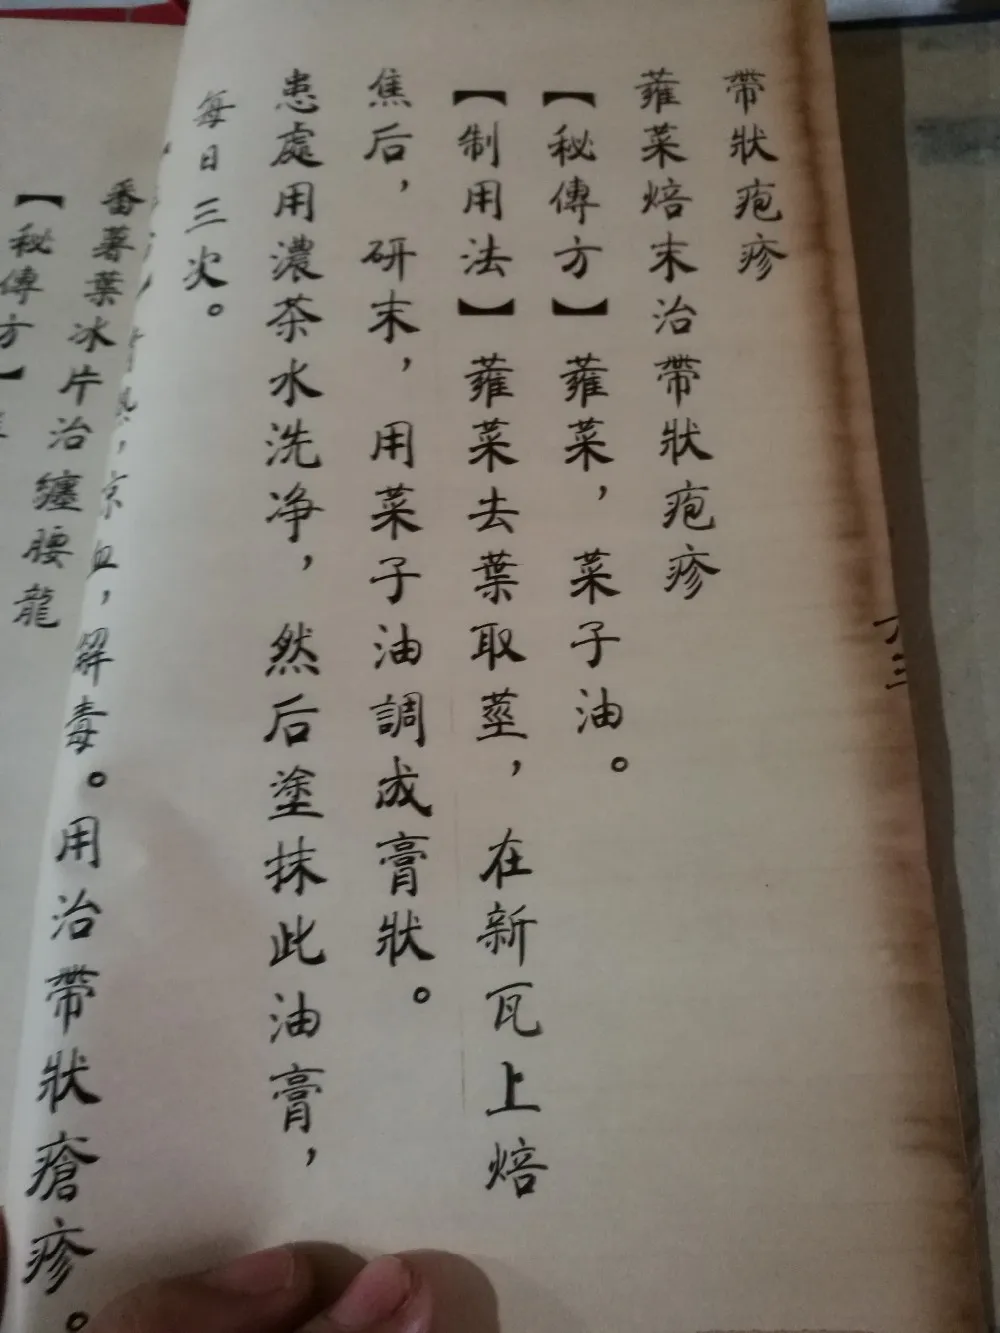 帶狀疱疹
蕹菜焙末治帶狀疱疹
【秘傳方】蕹菜，菜子油。
【制用法】蕹菜去葉取莖，在新瓦上焙
焦后，研末，用菜子油調成膏狀。
患處用濃茶水洗净，然后塗抹此油膏，
每日三次。
血，解毒。用治帶狀疮疹。
番薯葉冰片治纏腰龍
【秘傳方】